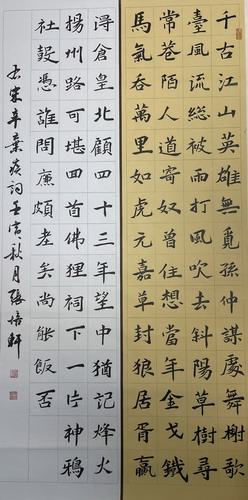 千古江山英雄無覓孫仲謀處舞榭歌
臺風流總被雨打風吹去斜陽草樹尋
常巷陌人道寄奴曾住想當年金戈鐵
馬氣吞萬里如虎元嘉草封狼居胥贏
淂倉皇北顧四十三年望中猶記烽火
揚州路可堪回首佛狸祠下一片神鴉
社鼓憑誰問廉頗老矣尚能飯否
宋辛棄疾詞壬寅秋月張培軒